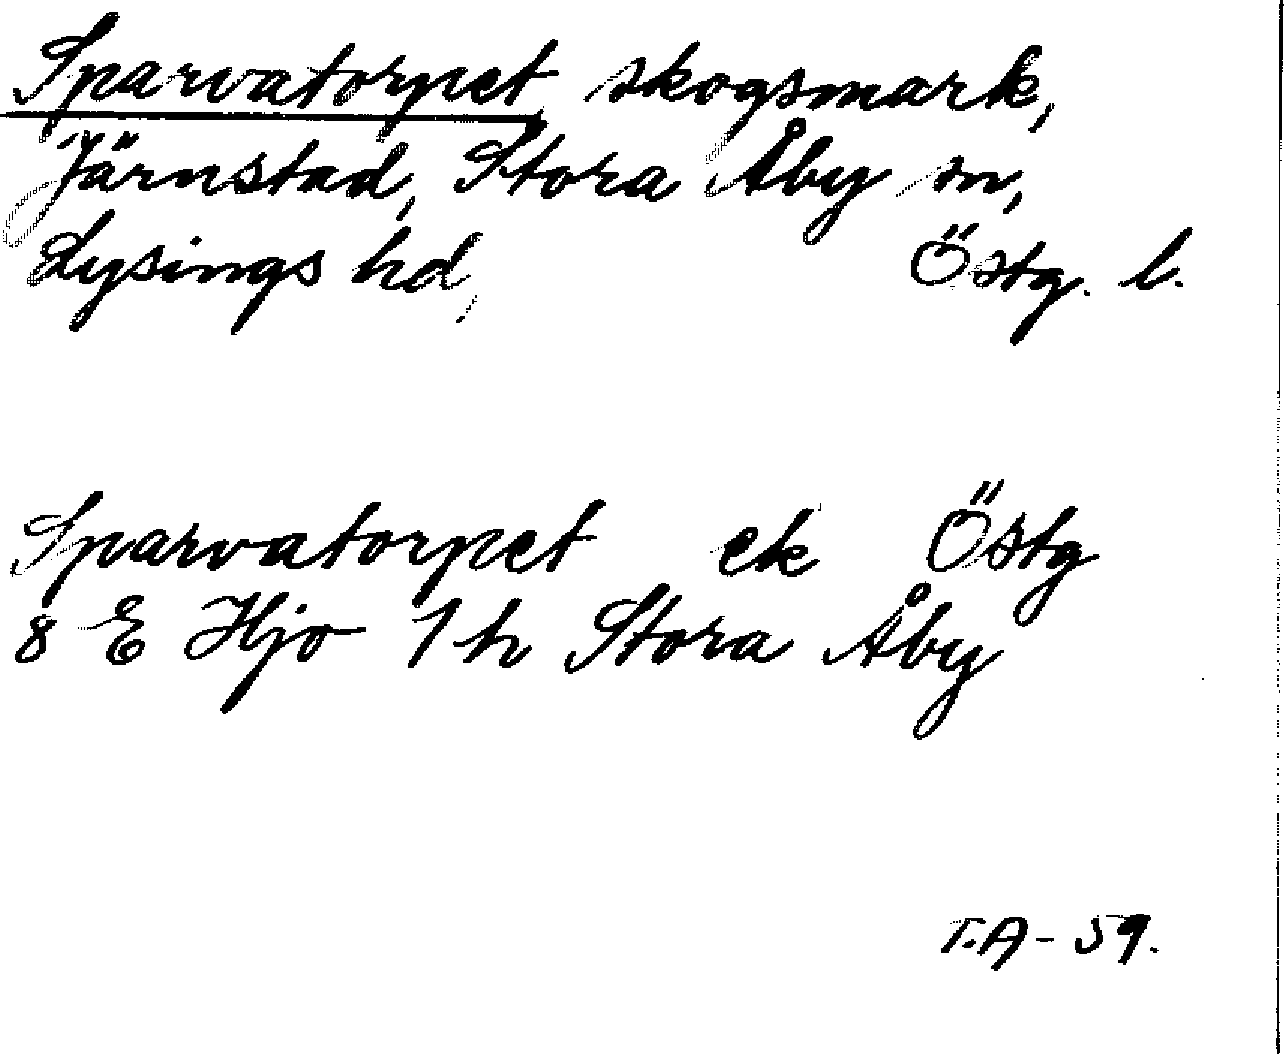 Sparvatorpet skogsmark,
Järnstad, Stora Åby sn,
Lysings hd, Östg. l.
Sparvatorpet ek Östg
8 E Hjo 1 h Stora Åby
T.A - 59.